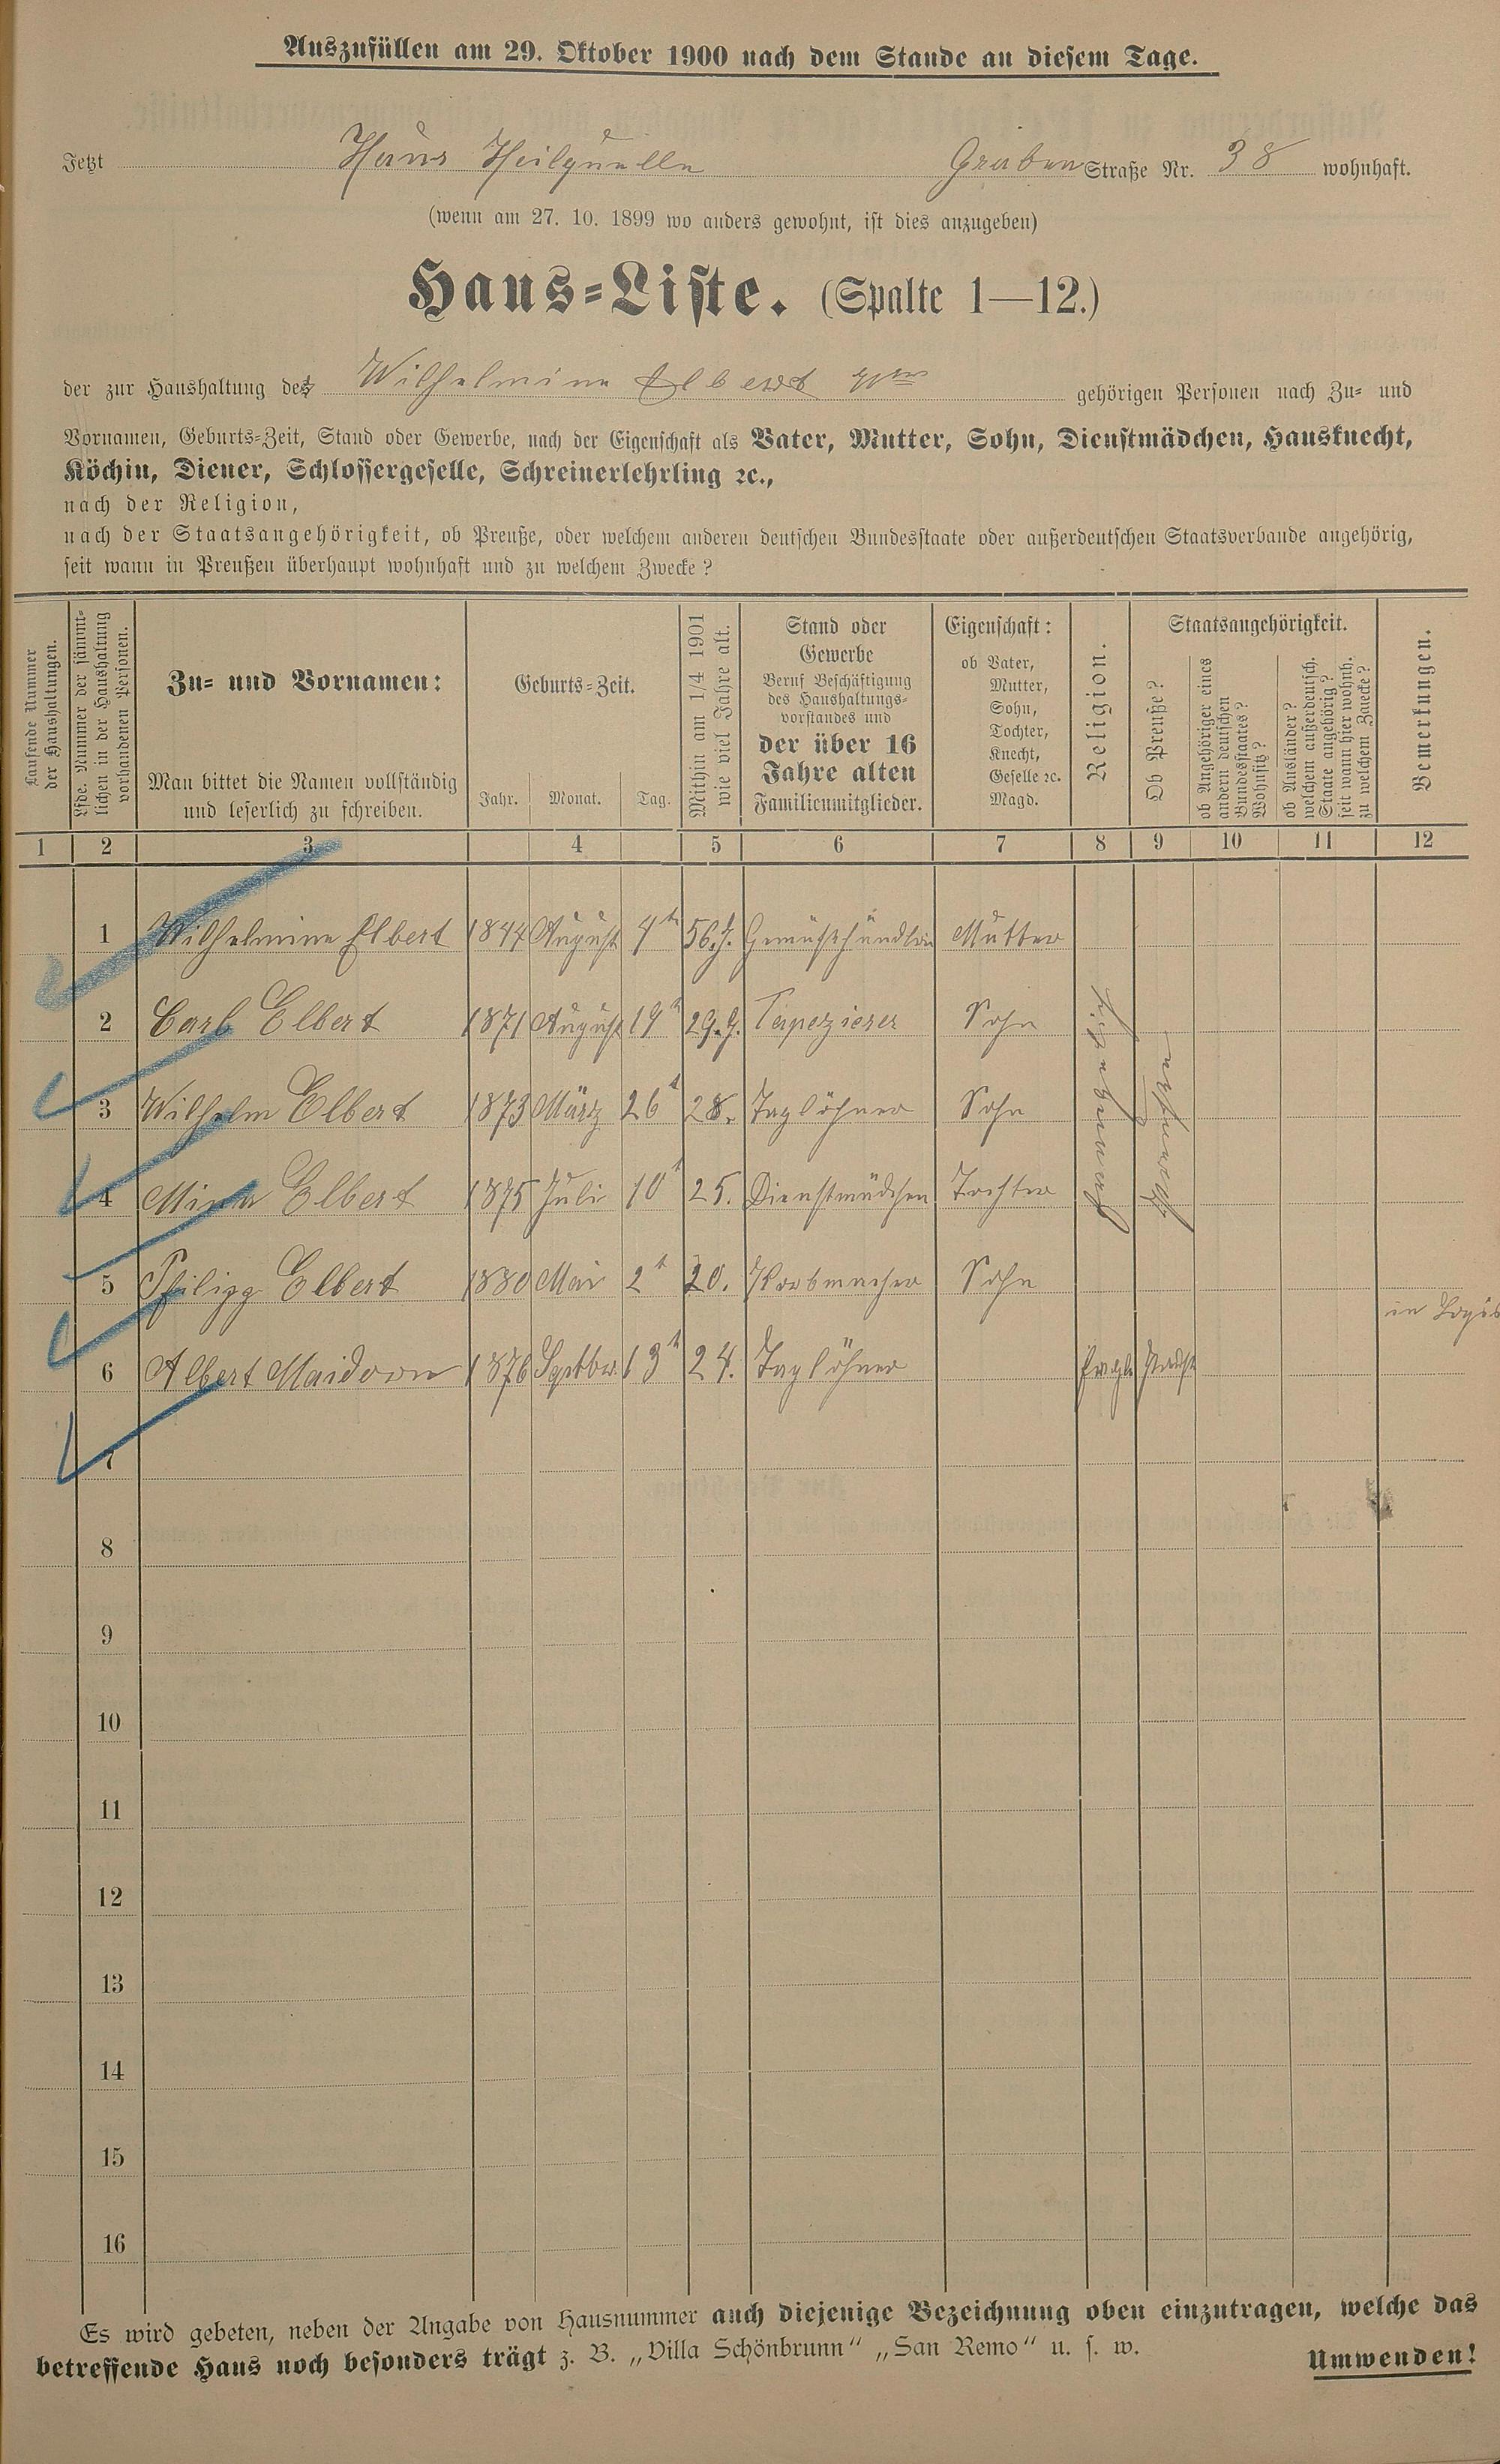 Auszufüllen am 29. Oktober 1900 nach dem Stande an diesem Tage.
Jetzt Haus Heilquelle Graben Straße Nr. 38 wohnhaft.
(wenn am 27. 10. 1899 wo anders gewohnt, ist dies anzugeben)
Haus-Liste. (Spalte 1—12.)
der zur Haushaltung der Wilhelmine Elbert gehörigen Personen nach Zu- und
Vornamen, Geburts-Zeit, Stand oder Gewerbe, nach der Eigenschaft als Vater, Mutter, Sohn, Dienstmädchen, Hausknecht,
Köchin, Diener, Schlossergeselle, Schreinerlehrling ꝛc.,
nach der Religion,
nach der Staatsangehörigkeit, ob Preuße, oder welchem anderen deutschen Bundesstaate oder außerdeutschen Staatsverbande angehörig,
seit wann in Preußen überhaupt wohnhaft und zu welchem Zwecke?
Laufende Nummer
der Haushaltungen.
Lfde. Nummer der sämmt-
lichen in der Haushaltung
vorhandenen Personen.
Zu- und Vornamen:
Man bittet die Namen vollständig
und leserlich zu schreiben.
Geburts-Zeit.
Jahr. Monat. Tag.
Mithin am 1/4 1901
wie viel Jahre alt.
Stand oder
Gewerbe
Beruf Beschäftigung
des Haushaltungs-
vorstandes und
der über 16
Jahre alten
Familienmitglieder.
Eigenschaft:
ob Vater,
Mutter,
Sohn,
Tochter,
Knecht,
Geselle ꝛc.
Magd.
Religion.
Staatsangehörigkeit.
Ob Preuße?
ob Angehöriger eines
andern deutschen
Bundesstaates?
Wohnsitz?
ob Ausländer?
welchem außerdeutsch.
Staate angehörig?
seit wann hier wohnh.
zu welchem Zwecke?
Bemerkungen.
1 2 3 4 5 6 7 8 9 10 11 12
1 Wilhelmine Elbert 1844 August 4t 56.J. Gemüsehändlerin Mutter
2 Carl Elbert 1871 August 19t 29.J. Tapezierer Sohn
3 Wilhelm Elbert 1873 März 26t 28. Taglöhner Sohn
4 Mina Elbert 1875 Juli 10t 25. Dienstmädchen Tochter
5 Philipp Elbert 1880 Mai 2t 20. Korbmacher Sohn
in Logis
6 Albert Maidorn 1876 Septbr. 13t 24. Taglöhner
7
8
9
10
11
12
13
14
15
16
Es wird gebeten, neben der Angabe von Hausnummer auch diejenige Bezeichnung oben einzutragen, welche das
betreffende Haus noch besonders trägt z. B. „Villa Schönbrunn" „San Remo" u. s. w.
Umwenden!